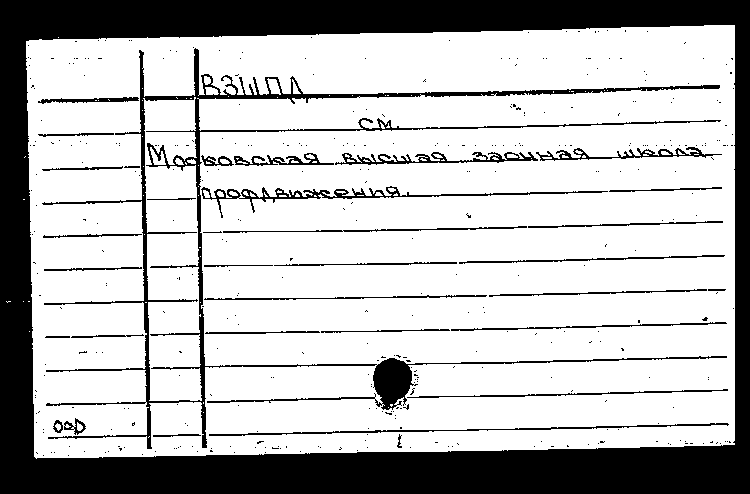 ВЗШПД
см.
Московская высшая заочная школа
профдвижения.